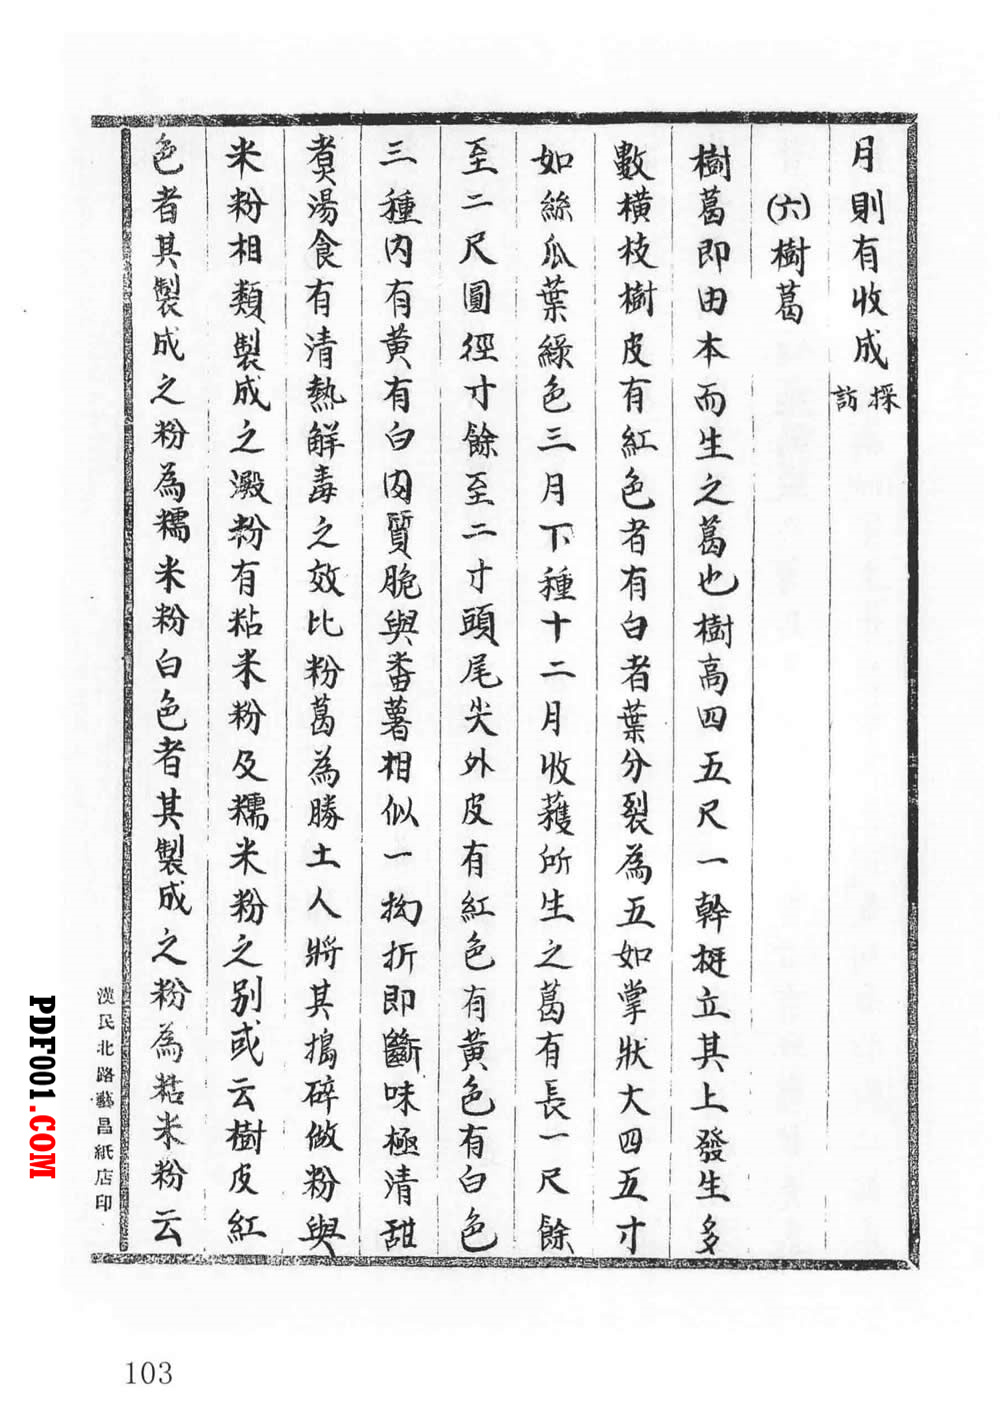 月則有收成採訪
(六)樹葛
樹葛即由本而生之葛也樹高四五尺一幹挺立其上發生多
數橫枝樹皮有紅色者有白者葉分裂為五如掌狀大四五寸
如絲瓜葉綠色三月下種十二月收穫所生之葛有長一尺餘
至二尺圓徑寸餘至二寸頭尾尖外皮有紅色有黃色有白色
三種內有黃有白肉質脆與番薯相似一拗折即斷味極清甜
煑湯食有清熱解毒之效比粉葛為勝土人將其搗碎做粉與
米粉相類製成之澱粉有粘米粉及糯米粉之別或云樹皮紅
色者其製成之粉為糯米粉白色者其製成之粉為粘米粉云
漢民北路藝昌紙店印
PDF001.COM
103